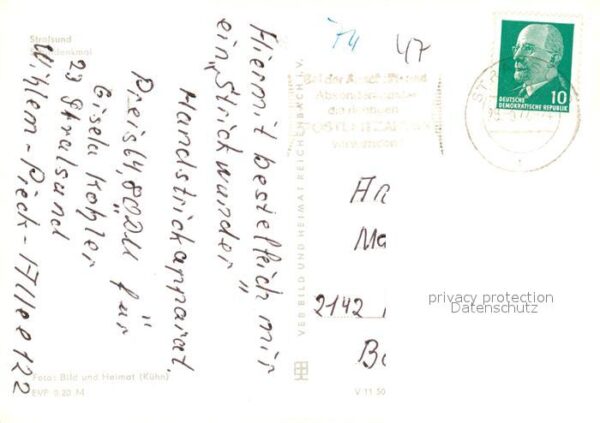 Stralsund
Hiermit bestell ich mir
ein „Strickwunder"
Handstrickapparat.
Preis 14,80 DM für
Gisela Kohler
23 Stralsund
Wilhelm-Pieck-Allee 122
Foto: Bild und Heimat (Kühn)
EVP 0.20 M
VEB BILD UND HEIMAT REICHENBACH I. V.
V 11 50
47
Absender
POSTLEITZAHL
DEUTSCHE
DEMOKRATISCHE REPUBLIK
10
An
Ma
2142
Ba
privacy protection
Datenschutz